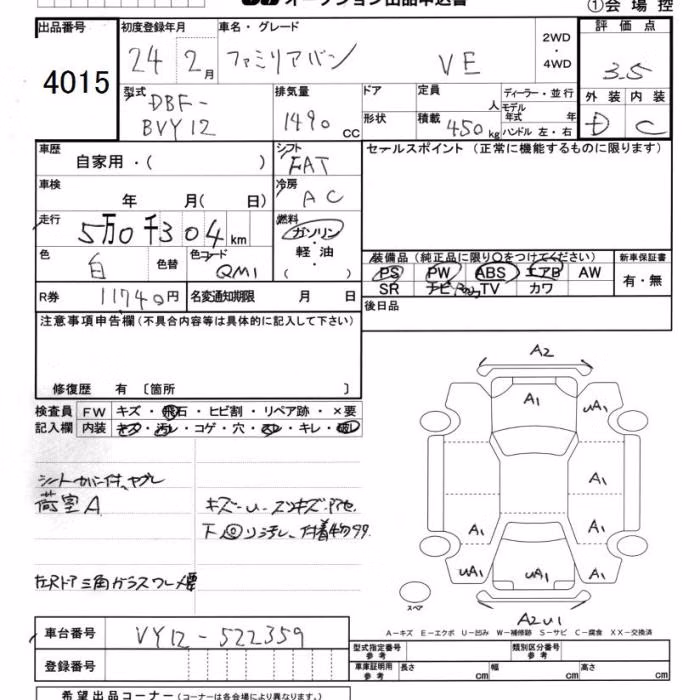 オークション出品申込書
①会場控
出品番号
4015
初度登録年月
24 2月
車名・グレード
ファミリアバン VE
2WD
・
4WD
評価点
3.5
外装 内装
D C
型式
DBF-
BVY12
排気量
1490 CC
ドア
形状
定員 人
積載 450kg
ディーラー・並行
モデル
年式 年
ハンドル 左・右
車歴
自家用・( )
シフト
FAT
セールスポイント (正常に機能するものに限ります)
車検
年 月( 日)
冷房
AC
走行
5万0千304km
燃料
ガソリン
・
軽油
( ・ )
色
白
色替
色コード
QM1
装備品 (純正品に限り○をつけてください)
PS PW ABS エアB AW
SR ナビ TV カワ
新車保証書
有・無
R券
11740円
名変通知期限 月 日
後日品
注意事項申告欄(不具合内容等は具体的に記入して下さい)
修復歴 有 〔箇所 〕
検査員
記入欄
FW キズ・飛石・ヒビ割・リペア跡・×要
内装 キズ・汚レ・コゲ・穴・スレ・キレ・
シートカバー付、ヤブレ
荷室A
キズ-U-スリキズ
左Rドア三角ガラスワレ×要
A2
A1
UA1
A1
A1
A1
A1
UA1
UA1
UA1
スペア
A2U1
A-キズ E-エクボ U-凹み W-補修跡 S-サビ C-腐食 XX-交換済
車台番号
VY12-522359
登録番号
型式指定番号
参考
類別区分番号
参考
車庫証明用
参考
長さ cm 幅 cm 高さ cm
希望出品コーナー (コーナーは各会場により異なります。)